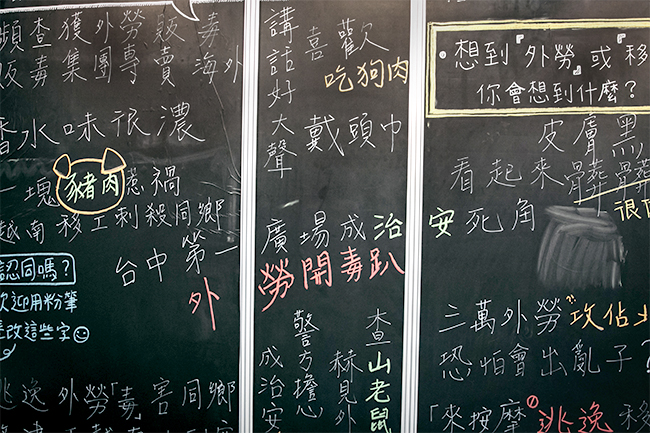 頻查獲外勞販毒
毒集團專賣海外
香水味很濃
一塊豬肉惹禍
越南移工刺殺同鄉
認同嗎?
歡迎用粉筆
改這些字
講話好大聲
喜歡
吃狗肉
戴頭巾
想到『外勞』或『移
你會想到什麼?
皮膚黑
看起來髒髒
台中第一廣場成治安死角
外勞開毒趴
逃逸外勞「毒」害同鄉
警方擔心
成治安
查山老鼠
赫見外
三萬外勞攻佔
恐怕會出亂子?
「來按摩
逃逸移